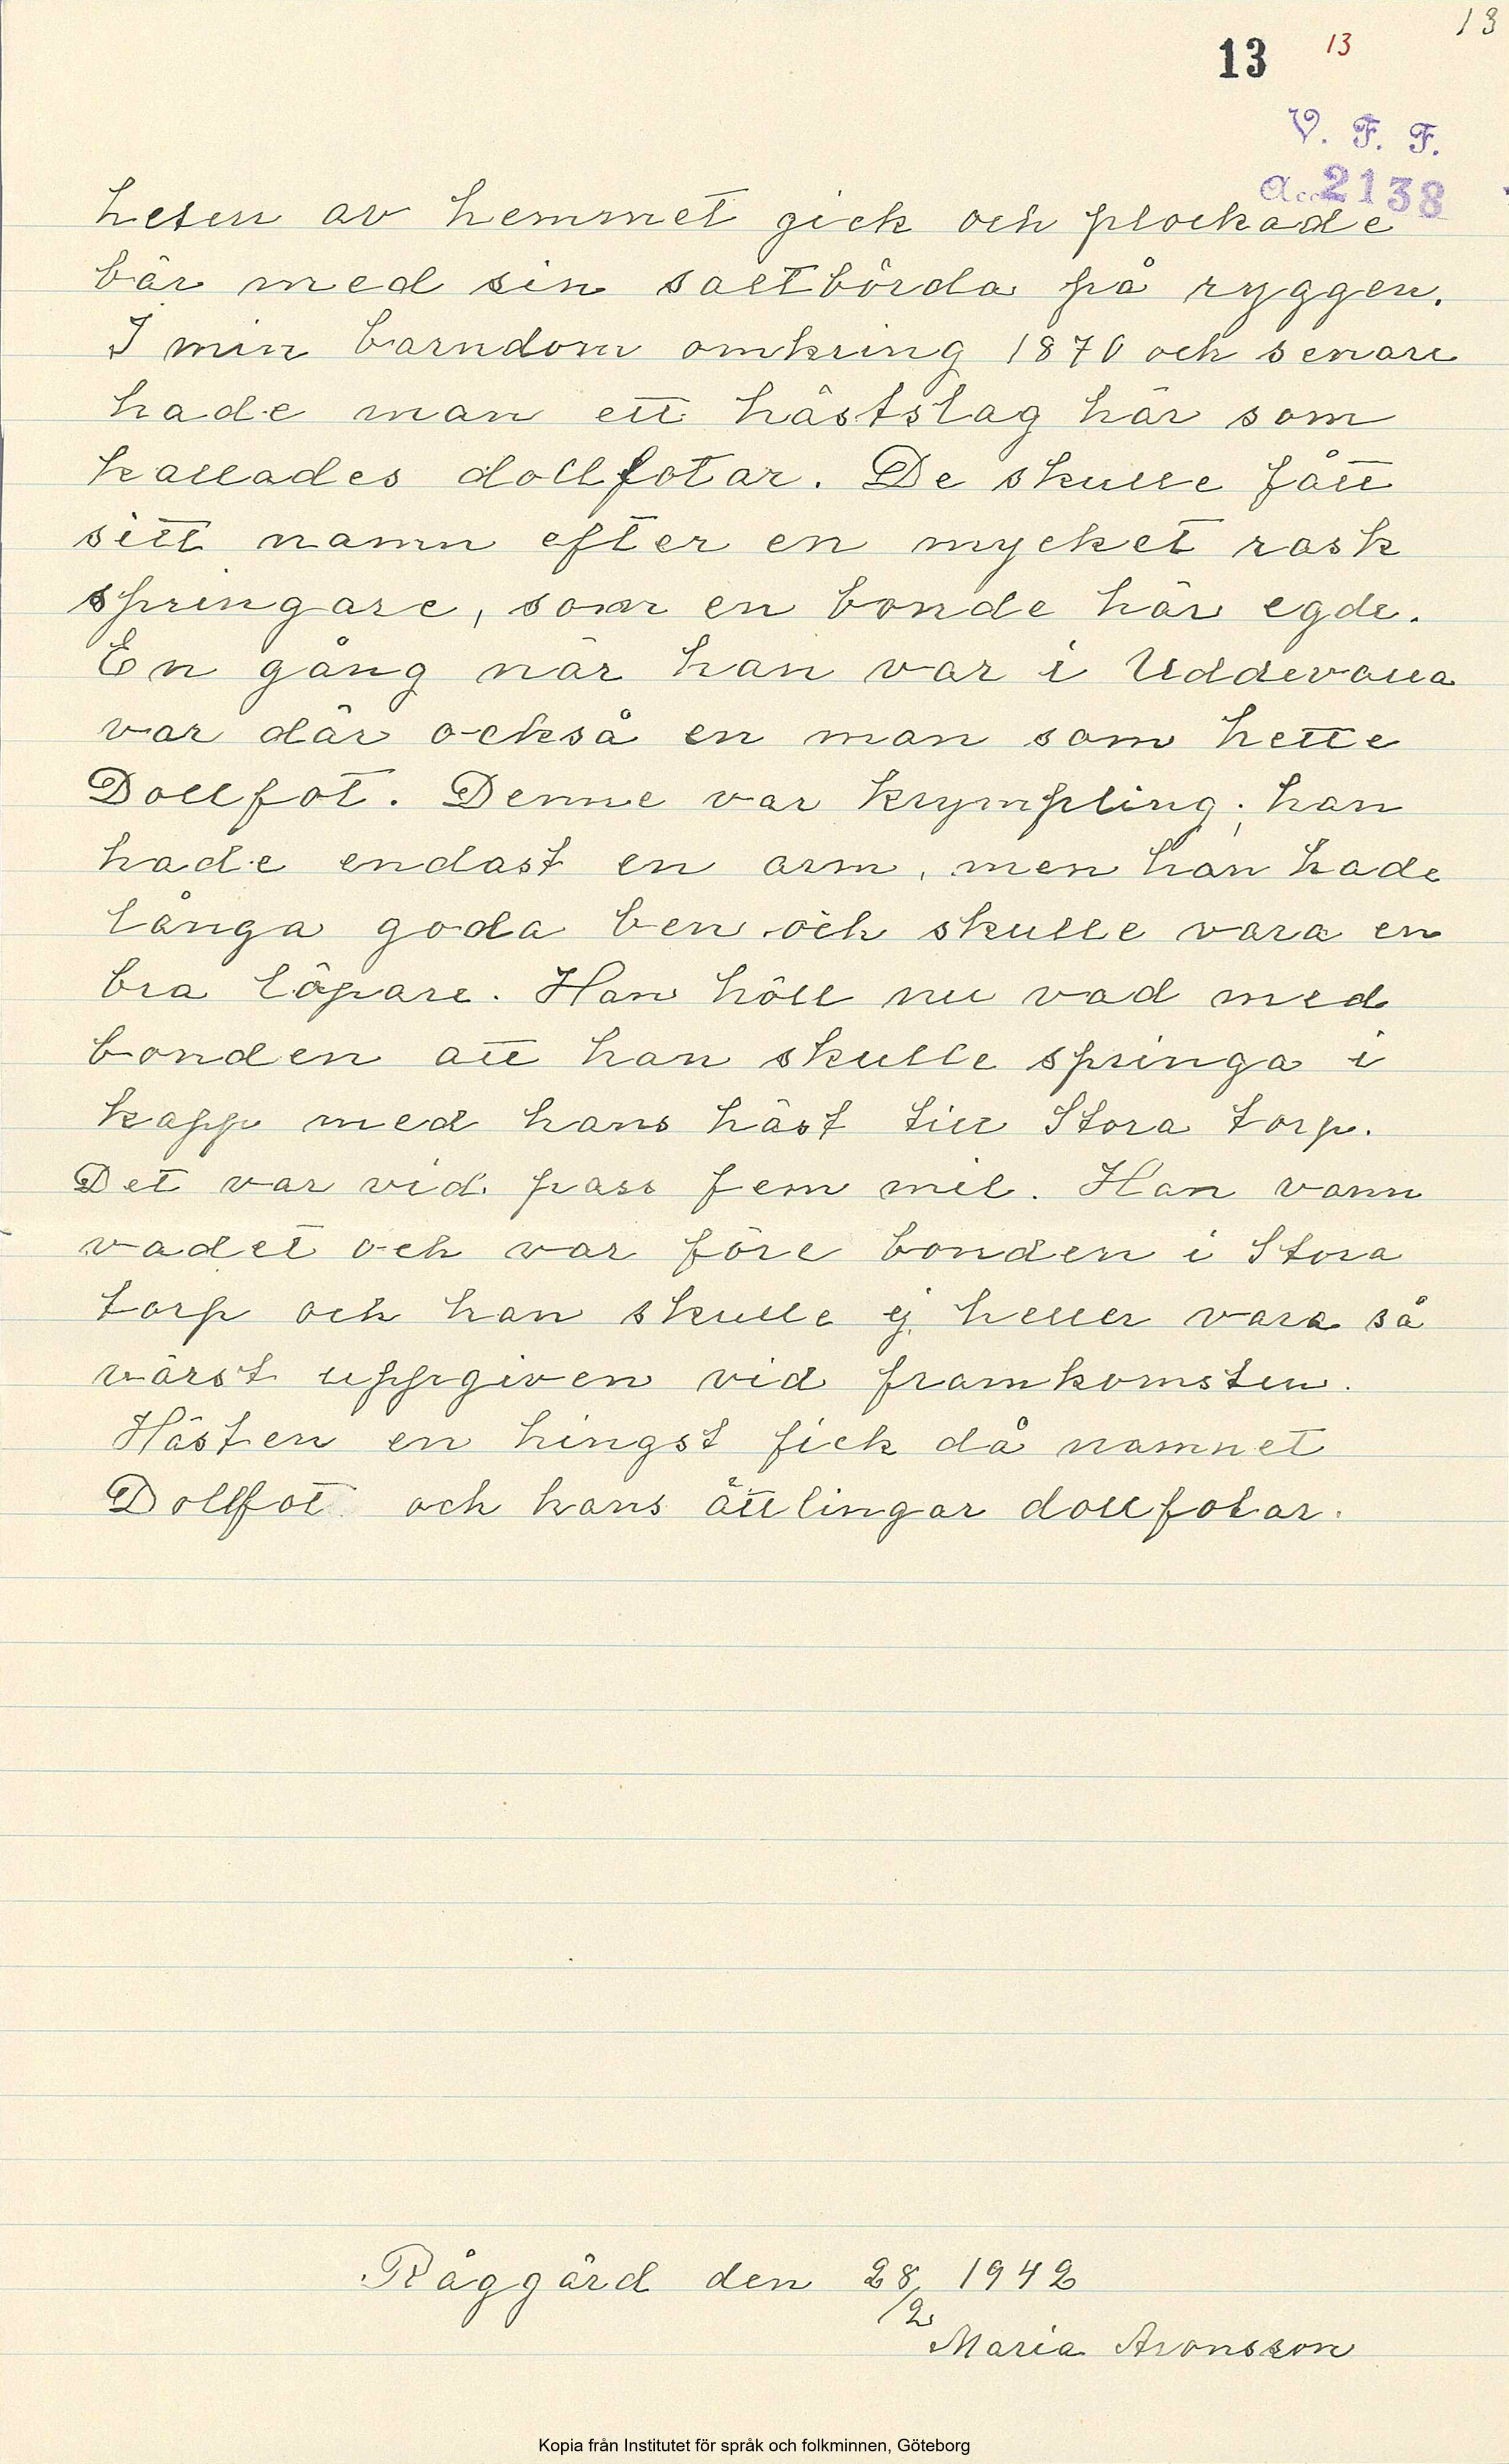 13
13
13
V. F. F.
Acc. 2138
heten av hemmet gick och plockade
bär med sin saltbörda på ryggen.
I min barndom omkring 1870 och senare
hade man ett hästslag här som
kallades dollfotar. De skulle fått
sitt namn efter en mycket rask
springare, som en bonde här egde.
En gång när han var i Uddevalla
var där också en man som hette
Dollfot. Denne var krympling; han
hade endast en arm, men han hade
långa goda ben och skulle vara en
bra löpare. Han höll nu vad med
bonden att han skulle springa i
kapp med hans häst till Stora torp.
Det var vid pass fem mil. Han vann
vadet och var före bonden i Stora
torp och han skulle ej heller vara så
värst uppgiven vid framkomsten.
Hästen en hingst fick då namnet
Dollfot och hans ättlingar dollfotar.
Råggärd den 28/2 1942
Maria Aronsson
Kopia från Institutet för språk och folkminnen, Göteborg